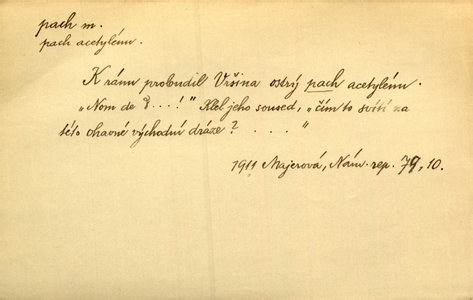 pach m.
pach acetylénu.
K ránu probudil Vršina ostrý pach acetylénu.
„Nom de D...!" Klel jeho soused, „čím to svítí na
této ohavné východní dráze? . . . . "
1911 Majerová, Nám. rep. 79, 10.